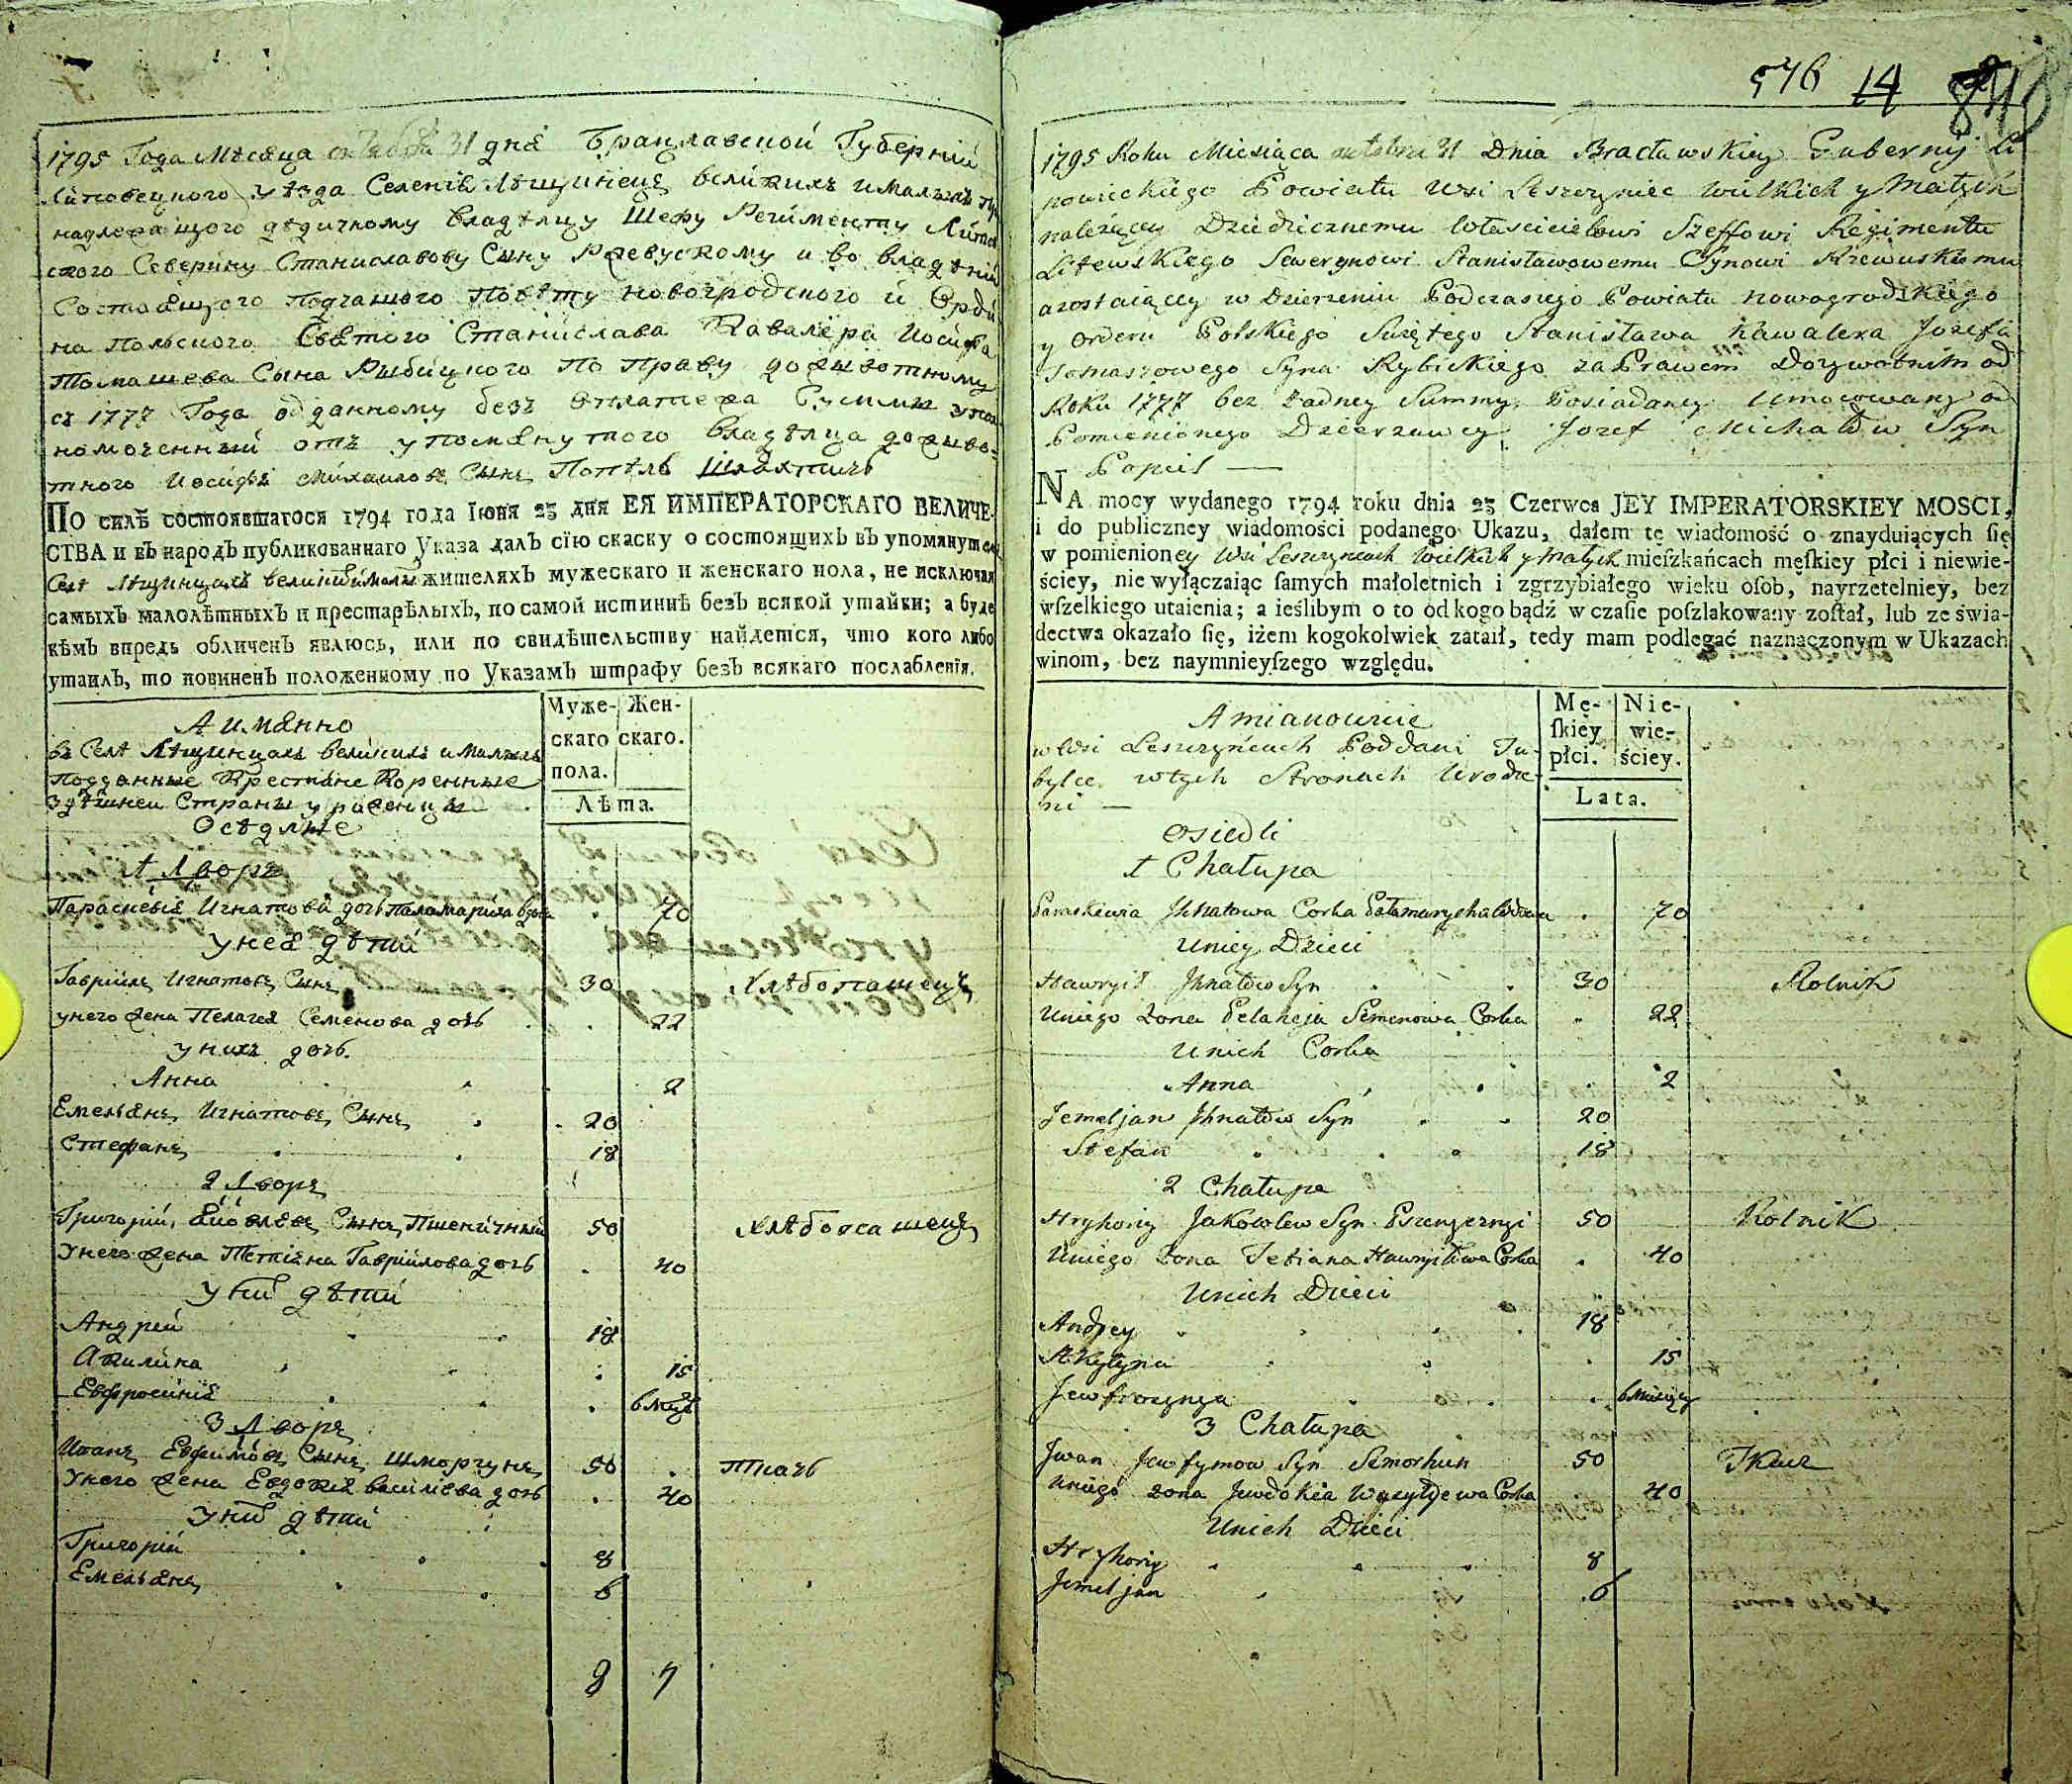 1795 Года Месяца октября 31 дня Брацлавской Губернии
Липовецкого уезда Селений Лещинец великих и малых при
надлежащого дедичному владелцу Шефу Регименту Литов
ского Северину Станиславову Сыну Ржевускому и во владении
Состоящого подчашого Повету новогродского и Орди
на польского Святого Станислава Кавалера Иосифа
Томашева Сына Рыбицкого по праву дожывотному
съ 1777 Года отданному безъ Суммы упол
номоченный отъ упомянутого владелца дожыво-
тного Иосифъ Михаиловъ Сынъ Попель Шляхтичъ
По силѣ состоявшагося 1794 года Іюня 23 дня ЕЯ ИМПЕРАТОРСКАГО ВЕЛИЧЕ-
СТВА и въ народъ публикованнаго Указа далъ сїю скаску о состоящихъ въ упомянутомъ
Селѣ Лѣщинцахъ великихъ и малыхъ жителяхъ мужескаго и женскаго пола, не исключая
самыхъ малолѣтныхъ и престарѣлыхъ, по самой истиннѣ безъ всякой утайки; а буде
кѣмъ впредь обличенъ явлюсь, или по свидѣтельству найдется, что кого либо
утаилъ, то повиненъ положенному по Указамъ штрафу безъ всякаго послабленїя.
А имянно
въ Селѣ Лѣщинцахъ великихъ и малыхъ
подданные Крестяне Коренные
здѣшней Страны уроженцы
Осѣдлые
Муже-скаго пола. Жен-скаго.
Лѣта.
1 Дворъ
Параскевия Игнатова дочь Паламариха вдова 70
у нея дѣти
Гаврiилъ Игнатовъ Сынъ 30 Хлѣбопашецъ
у него жена Пелагея Семенова дочь 22
у нихъ дочь
Анна 2
Емельянъ Игнатовъ Сынъ 20
Стефанъ 18
2 Дворъ
Григорий Яковлевъ Сынъ Пшеничный 50 Хлѣбопашецъ
У него жена Тетiяна Гаврiилова дочь 40
У них дѣти
Андрей 18
Акилина 15
Евфросиния 6 мцъ
3 Дворъ
Иванъ Евфимовъ Сынъ Шморгунъ 50 Ткачъ
У него жена Евдокия василиева дочь 40
У них дѣти
Григорий 8
Емельянъ 6
8 7
576 14
1795 Roku Miesiąca oktobra 31 Dnia Bracławskiey Guberny Li
powieckiego Powiatu Wsi Leszczyniec Wielkich y Małych
należącey Dziedzicznemu Właścicielowi Szeffowi Regimentu
Litewskiego Sewerynowi Stanisławowemu Synowi Rzewuskiemu
a zostaiącey w Dzierżeniu Podczaszego Powiatu Nowogrodzkiego
y Orderu Polskiego Świętego Stanisława Kawalera Jozefa
Tomaszowego Syna Rybickiego za Prawem Dożywotnim od
Roku 1777 bez żadney Summy Posiadaney Umocowany od
Pomienionego Dzierżawcy Jozef Michałow Syn
Popiel —
NA mocy wydanego 1794 roku dnia 23 Czerwca JEY IMPERATORSKIEY MOSCI,
i do publiczney wiadomości podanego Ukazu, dałem tę wiadomość o znayduiących się
w pomienioney Wsi Leszczyncach Wielkich y Małych mieszkańcach męskiey płci i niewie-
ściey, nie wyłączaiąc samych małoletnich i zgrzybiałego wieku osob, nayrzetelniey, bez
wszelkiego utaienia; a ieślibym o to od kogo bądź w czasie poszlakowany został, lub ze świa-
dectwa okazało się, iżem kogokolwiek zataił, tedy mam podlegać naznaczonym w Ukazach
winom, bez naymnieyszego względu.
A mianowicie
w Wsi Leszczyńcach Poddani Tu-
bylce w tych Stronach Urodze-
ni —
Osiedli
Mę-skiey płci. Nie-wie-ściey.
Lata.
1 Chałupa
Paraskiewia Jhnatowa Corka Pałamarycha Wdowa 70
U niey Dzieci
Hawryił Jhnatow Syn 30 Rolnik
U niego Zona Pelaheja Semenowa Corka 22
U nich Corka
Anna 2
Jemeljan Jhnatow Syn 20
Stefan 18
2 Chałupa
Hryhoriy Jakowlew Syn Pszenycznyi 50 Rolnik
U niego Zona Tetiana Hawryiłowa Corka 40
U nich Dzieci
Andrey 18
Akyłyna 15
Jewfrozynya 6 miesięcy
3 Chałupa
Jwan Jewfymow Syn Szmorhun 50 Tkacz
U niego zona Jewdokia Wasylijewa Corka 40
U nich Dzieci
Hryhoriy 8
Jemeljan 6